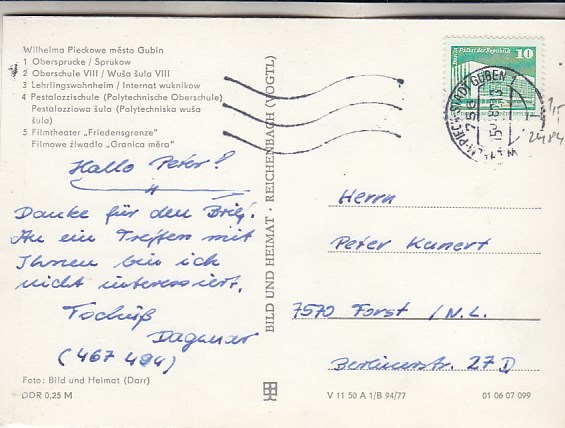 Wilhelma Pieckowe město Gubin
1 Obersprucke / Sprukow
2 Oberschule VIII / Wuša šula VIII
3 Lehrlingswohnheim / Internat wuknikow
4 Pestalozzischule (Polytechnische Oberschule)
Pestalozziowa šula (Polytechniska wuša
šula)
5 Filmtheater „Friedensgrenze"
Filmowe žiwadlo „Granica měra"
Hallo Peter!
Danke für den Brief.
An ein Treffen mit
Ihnen bin ich
nicht interessiert.
Tschüß
Dagmar
(467 484)
Foto: Bild und Heimat (Darr)
DDR 0,25 M
BILD UND HEIMAT · REICHENBACH (VOGTL)
10
Herrn
Peter Kunert
7570 Forst /N.L.
Berlinerstr. 27 D
V 11 50 A 1/B 94/77
01 06 07 099